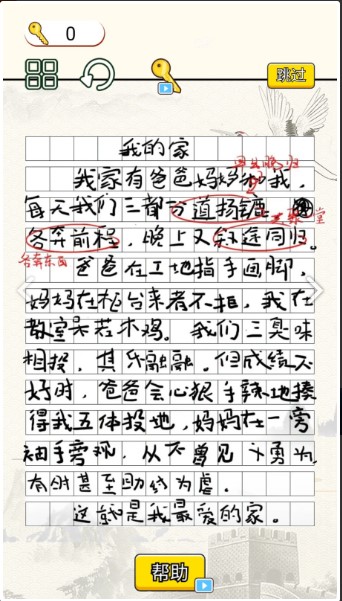 0
跳过
我的家
我家有爸爸妈妈和我,
每天我们三都分道扬镳
各奔前程,晚上又殊途同归。
各奔东西
爸爸在工地指手画脚,
妈妈在柜台来者不拒,我在
教室呆若木鸡。我们三臭味
相投,其乐融融。但成绩不
好时,爸爸会心狠手辣地揍
得我五体投地,妈妈在一旁
袖手旁观,从不曾见 勇为,
有时甚至助纣为虐。
这就是我最爱的家。
帮助